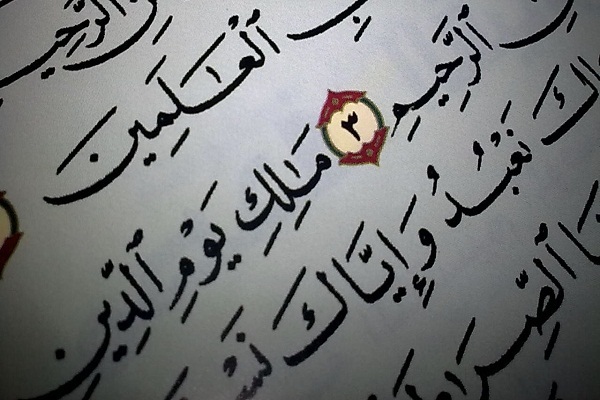 ٱلرَّحِيمِ
ٱلْعَـٰلَمِينَ
ٱلرَّحِيمِ ٣ مَـٰلِكِ يَوْمِ ٱلدِّينِ
نَعْبُدُ وَإِيَّاكَ
ٱلصِّرَٰطَ